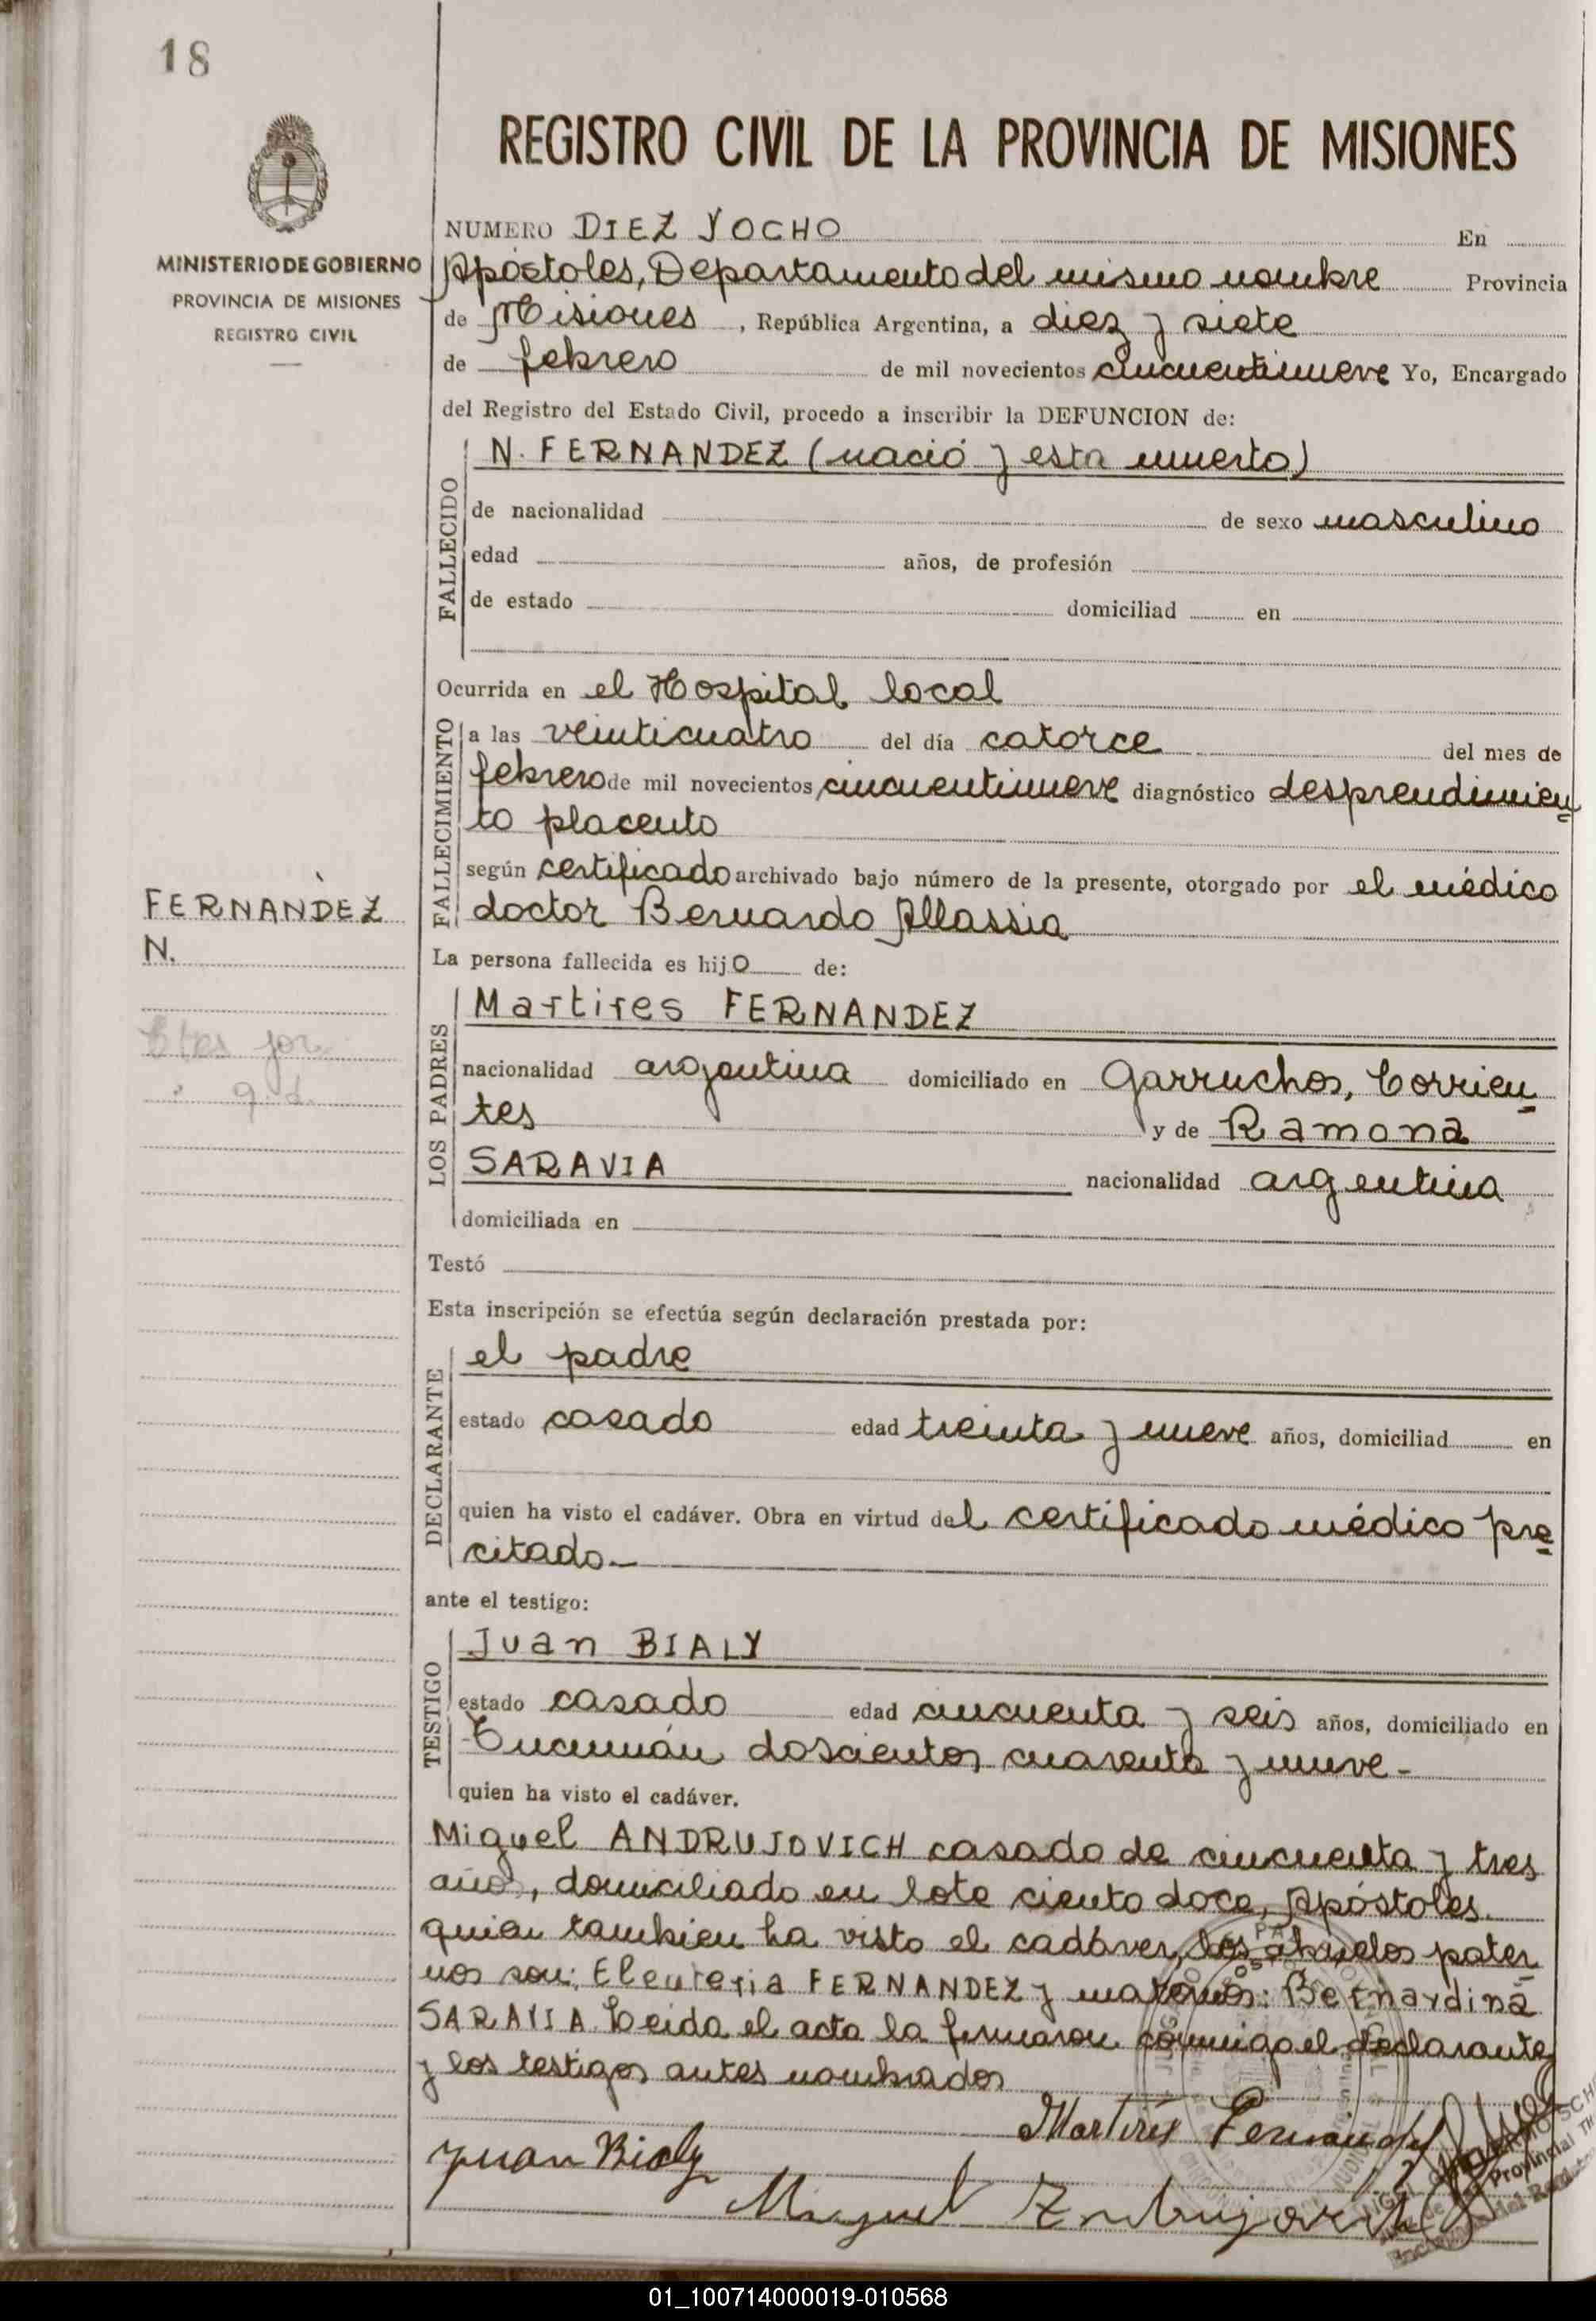 18
REGISTRO CIVIL DE LA PROVINCIA DE MISIONES
MINISTERIO DE GOBIERNO
PROVINCIA DE MISIONES
REGISTRO CIVIL
NUMERO DIEZ Y OCHO En
Apóstoles, Departamento del mismo nombre Provincia
de Misiones, República Argentina, a diez y siete
de febrero de mil novecientos cincuentinueve Yo, Encargado
del Registro del Estado Civil, procedo a inscribir la DEFUNCION de:
FALLECIDO
N. FERNANDEZ (nació y esta muerto)
de nacionalidad de sexo masculino
edad años, de profesión
de estado domiciliad en
Ocurrida en el Hospital local
FALLECIMIENTO
a las veinticuatro del día catorce del mes de
febrero de mil novecientos cincuentinueve diagnóstico desprendimien
to placento
según certificado archivado bajo número de la presente, otorgado por el médico
doctor Bernardo Allassia
FERNANDEZ
N.
La persona fallecida es hijo de:
LOS PADRES
Martires FERNANDEZ
nacionalidad argentina domiciliado en Garruchos, Corrien
tes y de Ramona
SARAVIA nacionalidad argentina
domiciliada en
Testó
Esta inscripción se efectúa según declaración prestada por:
DECLARANTE
el padre
estado casado edad treinta y nueve años, domiciliad en
quien ha visto el cadáver. Obra en virtud del certificado médico pre
citado.-
ante el testigo:
TESTIGO
Juan BIALY
estado casado edad cincuenta y seis años, domiciliado en
Tucumán doscientos cuarenta y nueve-
quien ha visto el cadáver.
Miguel ANDRUJOVICH casado de cincuenta y tres
años, domiciliado en lote ciento doce, Apóstoles.
quien tambien ha visto el cadáver, los abuelos pater
nos son: Eleuteria FERNANDEZ y maternos: Bernardina
SARAVIA Leida el acta la firmaron conmigo el declarante
y los testigos antes nombrados
Martires Fernandez
Juan Bialy
Miguel Andrujovich
01_100714000019-010568